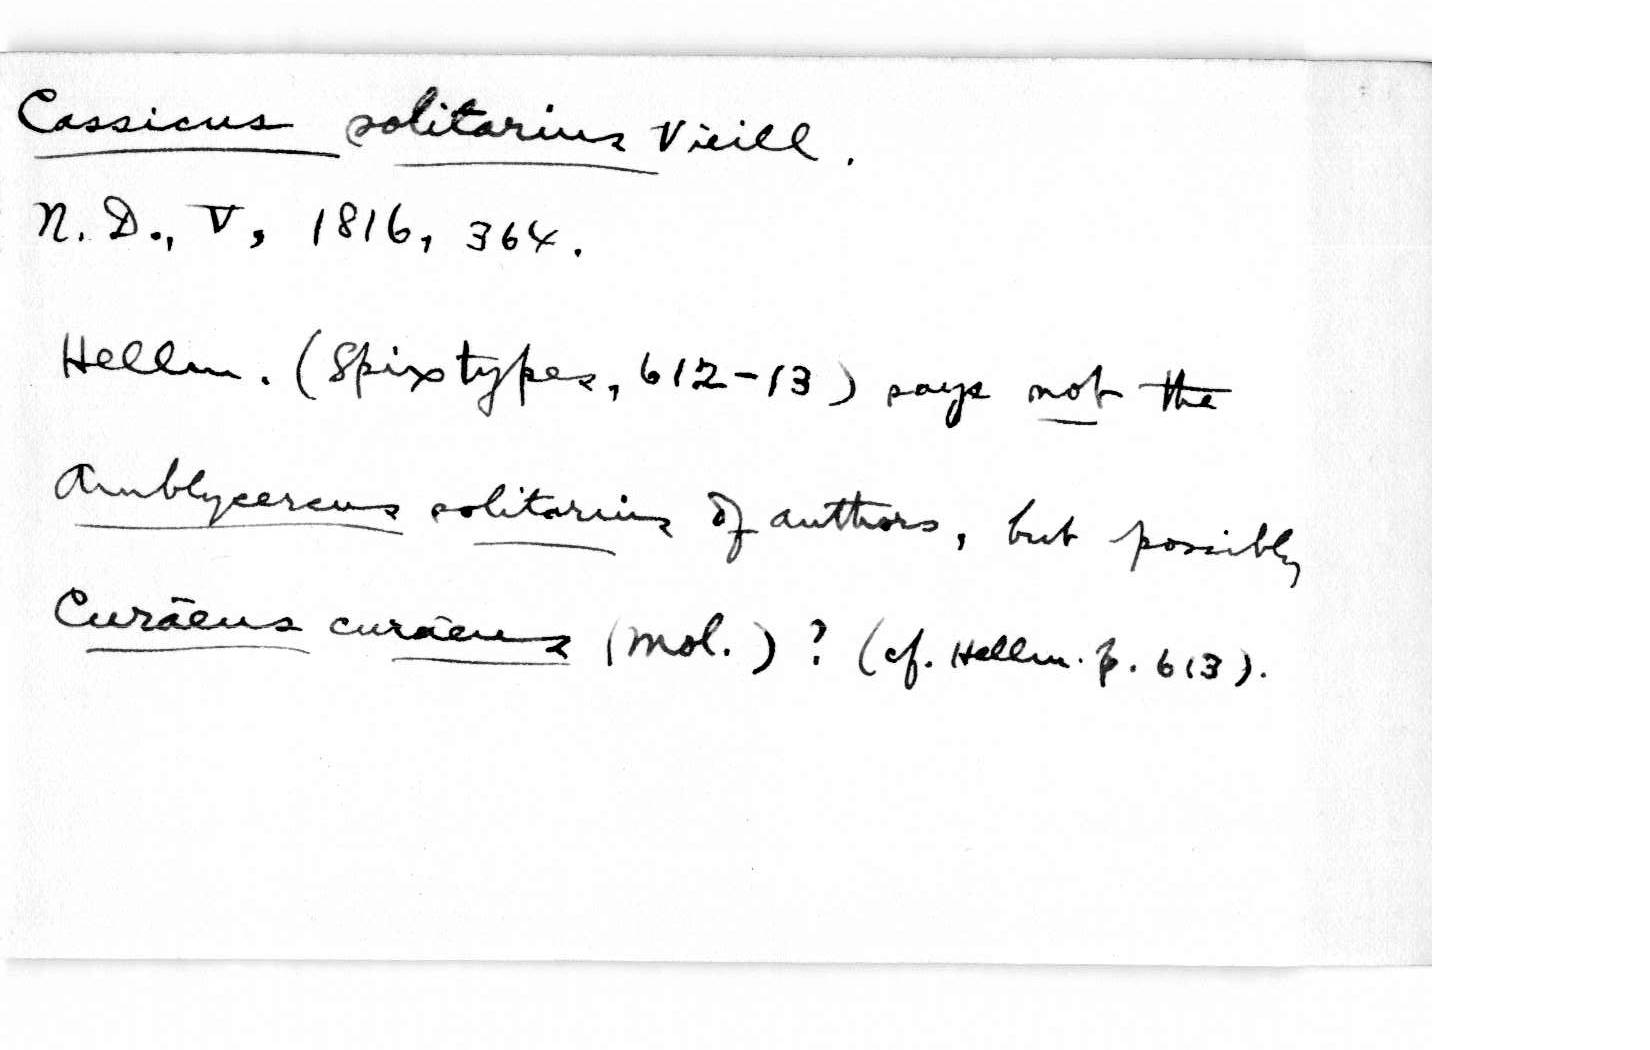 Cassicus solitarius Vieill.
N. D., V, 1816, 364.
Hellm. (Spixtypes, 612-13) says not the
Amblycercus solitarius of authors, but possibly
Curāeus curāeus (Mol.)? (cf. Hellm. p. 613).